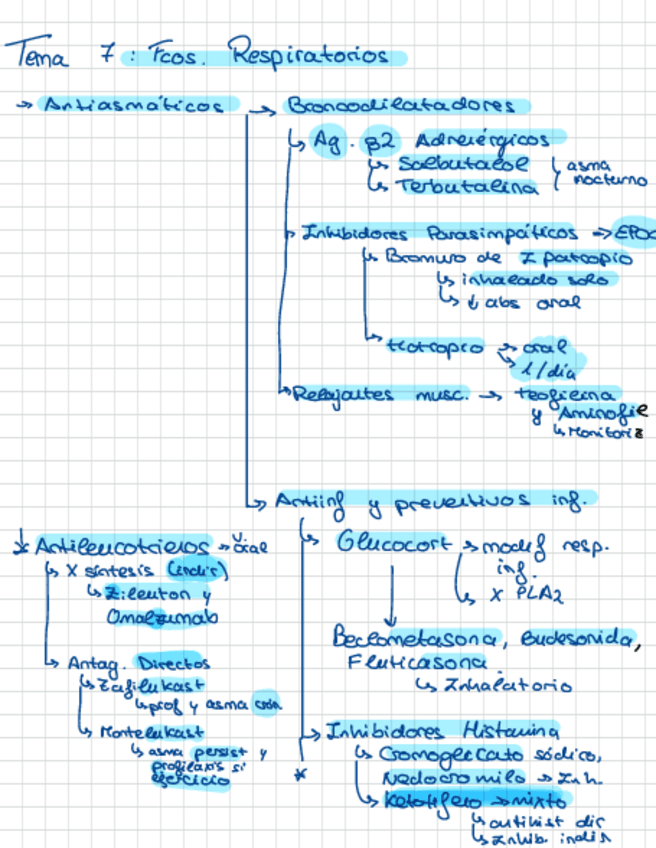 Tema 7: Fcos. Respiratorios
→ Antiasmáticos → Broncodilatadores
↳ Ag. β2 Adrenérgicos
↳ Salbutalol
↳ Terbutalina
asma
nocturno
↳ Inhibidores Parasimpáticos → EPOC
↳ Bromuro de Ipatropio
↳ inhalado solo
↳ ↓ abs oral
→ tiotropio → oral
↳ 1/día
→ Relajantes musc. → teofilina
y Aminofil
↳ Monitoriz
↳ Antiinf y preventivos inf.
↳ Glucocort → modif resp.
inf.
↳ X PLA2
Beclometasona, Budesonida,
Fluticasona
↳ Inhalatorio
→ Inhibidores Histamina
↳ Cromoglicato sódico,
Nedocromilo → Inh.
↳ Ketotifeno → mixto
↳ antihist dir
↳ Inhib. indir
*
* Antileucotrienos → V. oral
↳ X síntesis (indir)
↳ Zileuton y
Omalizumab
↳ Antag. Directos
↳ Zafilukast
↳ prof y asma crón
↳ Montelukast
↳ asma persist y
profilaxis si
ejercicio